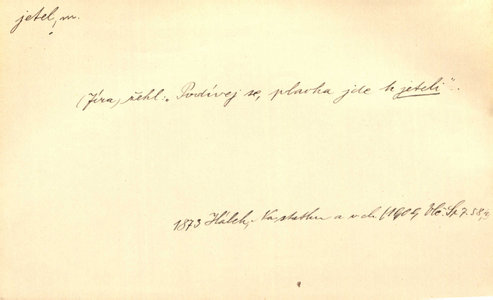 jetel, m.
(Jíra) řekl: „Podívej se, plavka jde k jeteli“.
1873 Hálek, Na statku a v ch (1909, Sp. 7. 58,